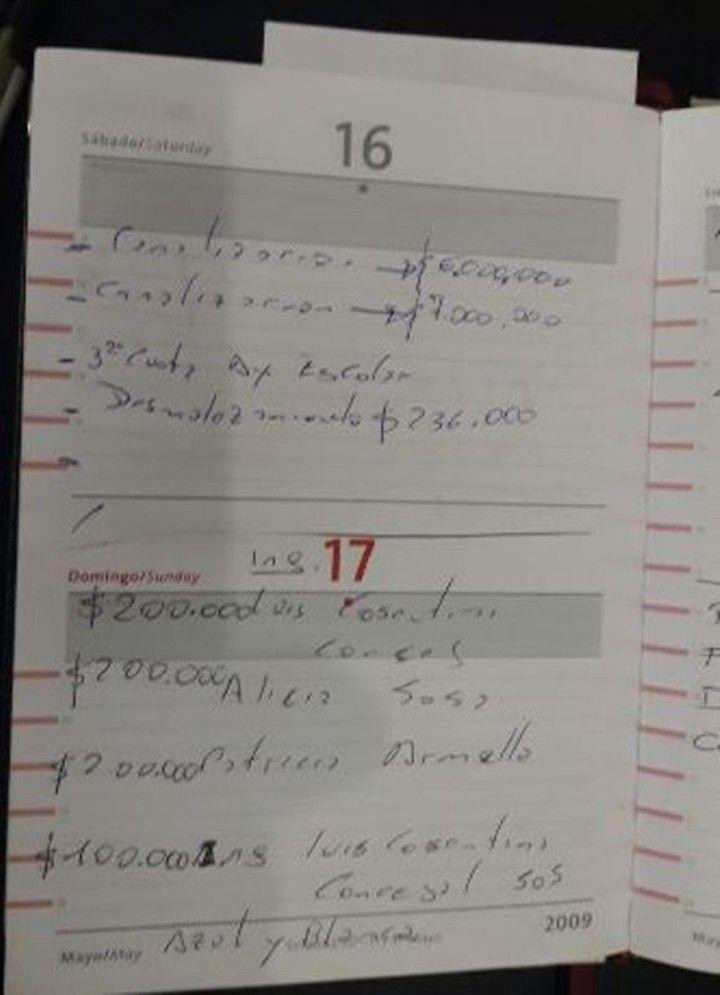 Sábado/Saturday
16
- Canalizacion → $ 6.000,000
- Canalizacion → $ 7.000.000
- 3ª Cuota Ay Escolar
- Desmalezamiento $ 236.000
-
Domingo/Sunday
Ing. 17
$200.000 Luis Cosentino
$200.000 Alicia Sosa
$200.000 Patricia Armella
$100.000 Ing Luis Cosentino
Concejal SOS
Mayo/May
Azul y Blanco
2009